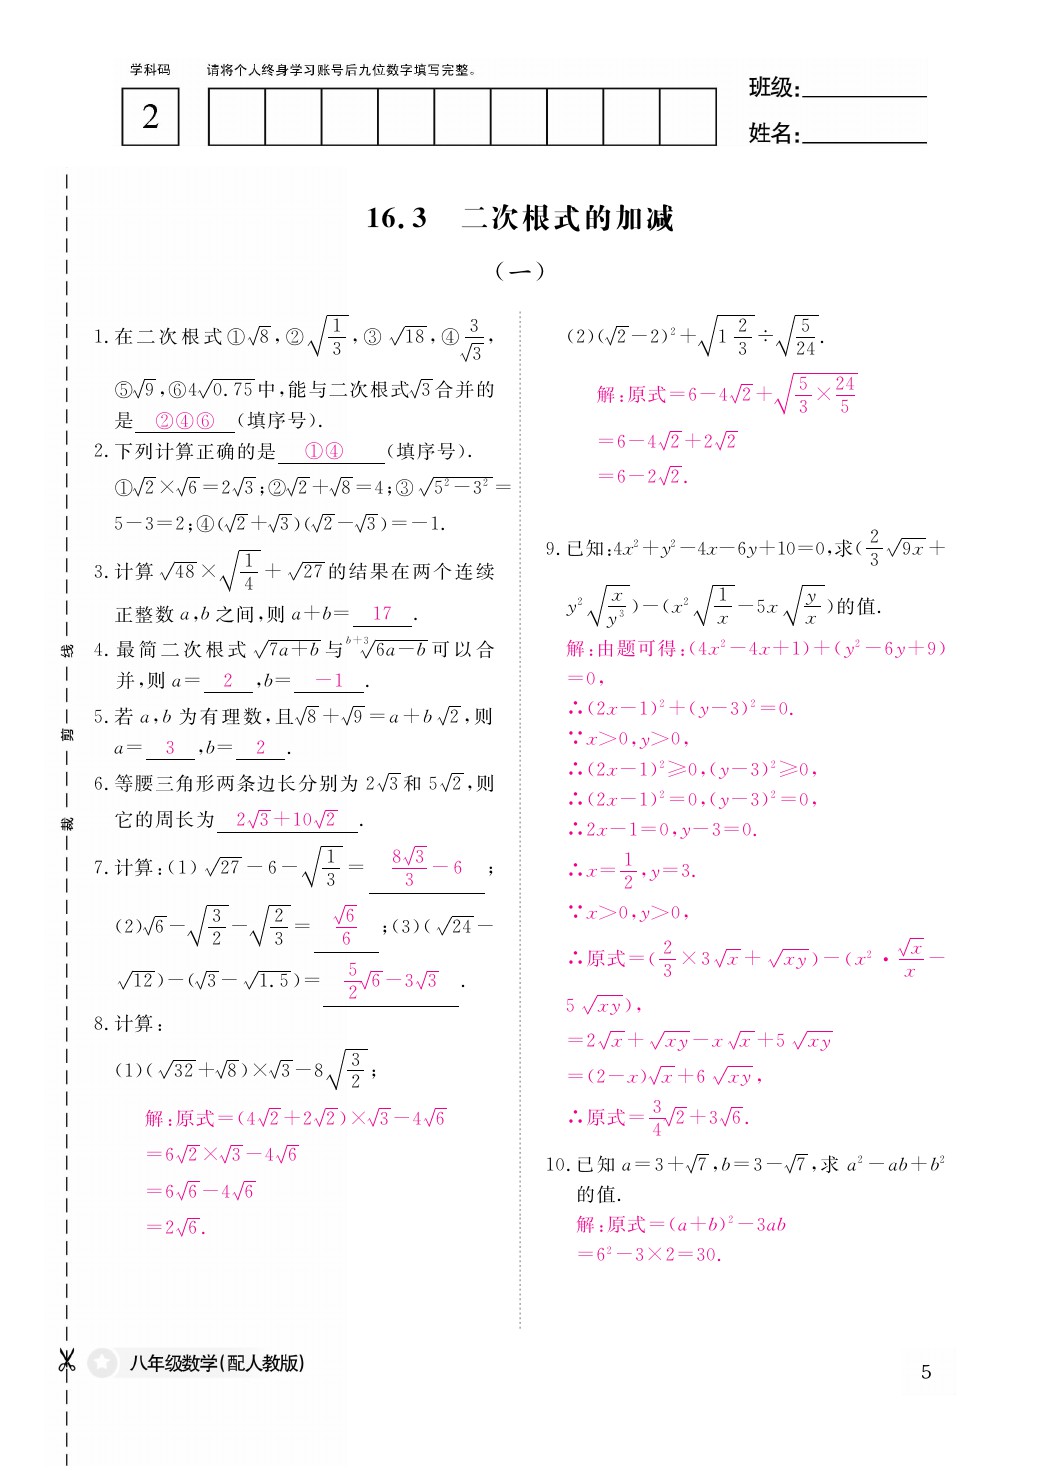 学科码 请将个人终身学习账号后九位数字填写完整。
2
班级:
姓名:
16.3 二次根式的加减
(一)
1.在二次根式①√8,②√(1/3),③√18,④3/√3,
⑤√9,⑥4√0.75中,能与二次根式√3合并的
是 ②④⑥ (填序号).
2.下列计算正确的是 ①④ (填序号).
①√2×√6=2√3;②√2+√8=4;③√(5²-3²)=
5-3=2;④(√2+√3)(√2-√3)=-1.
3.计算√48×√(1/4)+√27的结果在两个连续
正整数a,b之间,则a+b= 17 .
4.最简二次根式√(7a+b)与ᵇ⁺³√(6a-b)可以合
并,则a= 2 ,b= -1 .
5.若a,b为有理数,且√8+√9=a+b√2,则
a= 3 ,b= 2 .
6.等腰三角形两条边长分别为2√3和5√2,则
它的周长为 2√3+10√2 .
7.计算:(1)√27-6-√(1/3)= 8√3/3-6 ;
(2)√6-√(3/2)-√(2/3)= √6/6 ;(3)(√24-
√12)-(√3-√1.5)= 5/2√6-3√3 .
8.计算:
(1)(√32+√8)×√3-8√(3/2);
解:原式=(4√2+2√2)×√3-4√6
=6√2×√3-4√6
=6√6-4√6
=2√6.
(2)(√2-2)²+√(1 2/3)÷√(5/24).
解:原式=6-4√2+√(5/3×24/5)
=6-4√2+2√2
=6-2√2.
9.已知:4x²+y²-4x-6y+10=0,求(2/3√9x+
y²√(x/y³))-(x²√(1/x)-5x√(y/x))的值.
解:由题可得:(4x²-4x+1)+(y²-6y+9)
=0,
∴(2x-1)²+(y-3)²=0.
∵x>0,y>0,
∴(2x-1)²≥0,(y-3)²≥0,
∴(2x-1)²=0,(y-3)²=0,
∴2x-1=0,y-3=0.
∴x=1/2,y=3.
∵x>0,y>0,
∴原式=(2/3×3√x+√xy)-(x²•√x/x-
5√xy),
=2√x+√xy-x√x+5√xy
=(2-x)√x+6√xy,
∴原式=3/4√2+3√6.
10.已知a=3+√7,b=3-√7,求a²-ab+b²
的值.
解:原式=(a+b)²-3ab
=6²-3×2=30.
线
剪
裁
八年级数学(配人教版)
5